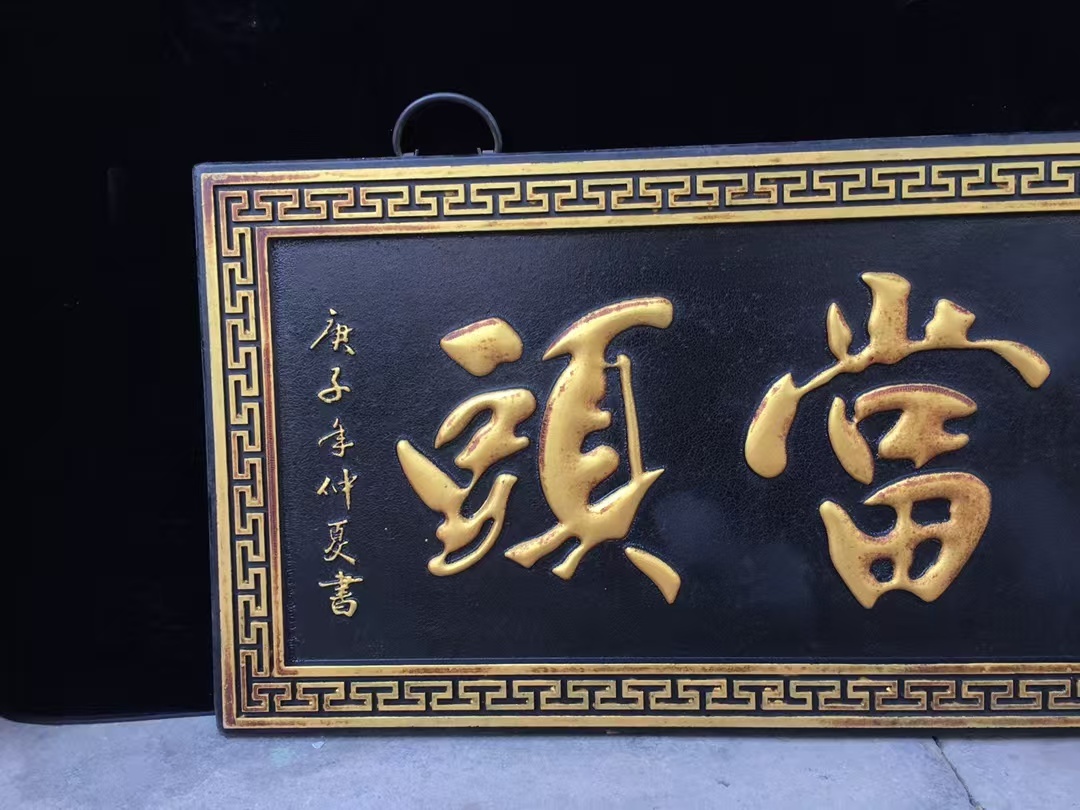 當頭
庚子年仲夏書